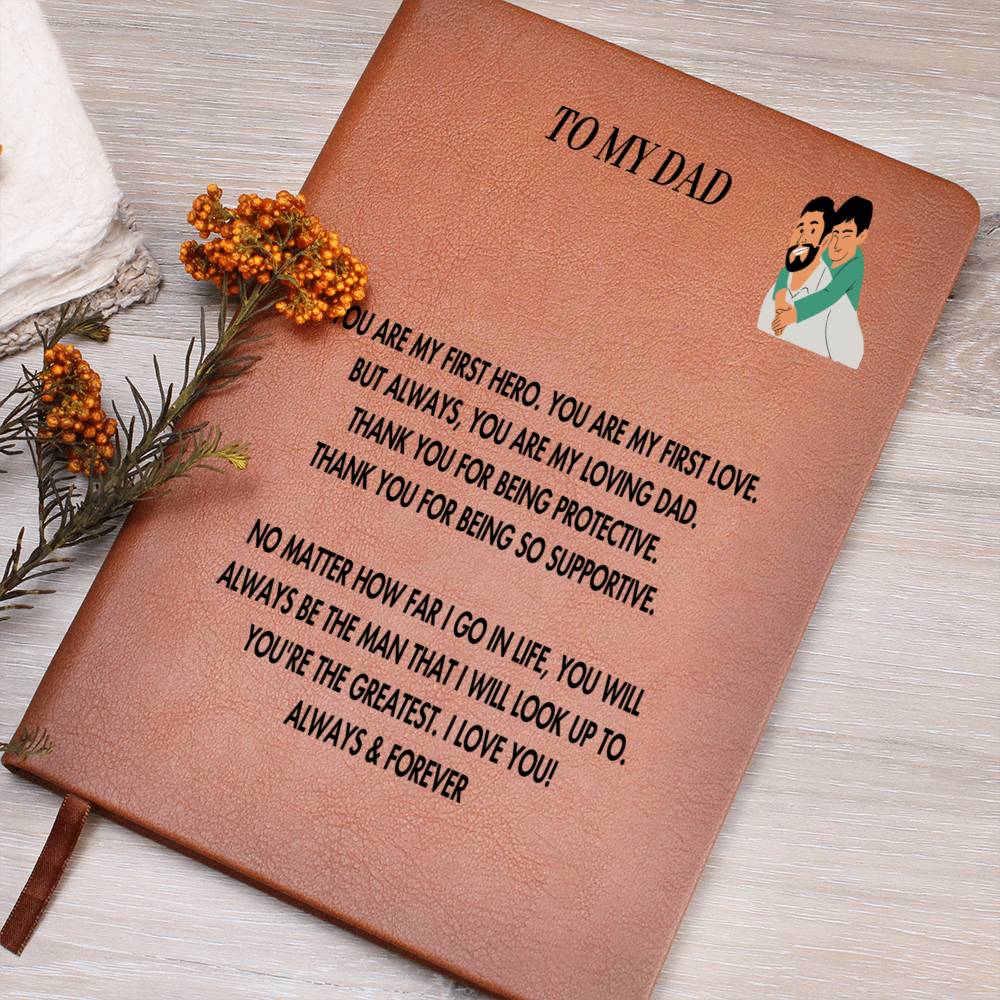 TO MY DAD
YOU ARE MY FIRST HERO. YOU ARE MY FIRST LOVE.
BUT ALWAYS, YOU ARE MY LOVING DAD.
THANK YOU FOR BEING PROTECTIVE.
THANK YOU FOR BEING SO SUPPORTIVE.
NO MATTER HOW FAR I GO IN LIFE, YOU WILL
ALWAYS BE THE MAN THAT I WILL LOOK UP TO.
YOU'RE THE GREATEST. I LOVE YOU!
ALWAYS & FOREVER